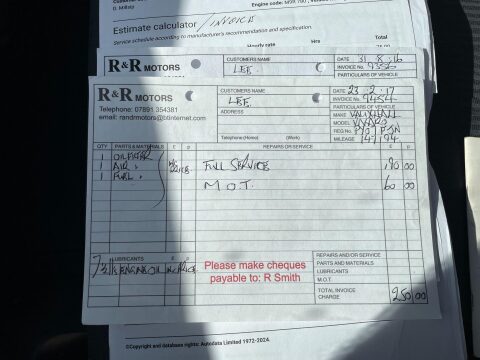 D. Millap
Engine code: M9R 780
Estimate calculator / INVOICE
Service schedule according to manufacturer's recommendation and specification.
Hourly rate Hrs
R&R MOTORS
CUSTOMERS NAME
LEE
DATE 31.8.16
INVOICE No.
PARTICULARS OF VEHICLE
R&R MOTORS
Telephone: 07891 354381
email: randrmotors@btinternet.com
CUSTOMERS NAME
LEE
ADDRESS
Telephone: (Home) (Work)
DATE 23.2.17
INVOICE No. 9454
PARTICULARS OF VEHICLE
MAKE VAUXHALL
MODEL VIVARO
REG No.
MILEAGE 147194
QTY PARTS & MATERIALS £ p REPAIRS OR SERVICE £ p
1 OIL FILTER
1 AIR "
1 FUEL "
FULL SERVICE 190 00
M.O.T. 60 00
LUBRICANTS £
7½ ENGINE OIL
Please make cheques
payable to: R Smith
REPAIRS AND/OR SERVICE
PARTS AND MATERIALS
LUBRICANTS
M.O.T.
TOTAL INVOICE
CHARGE 250 00
©Copyright and database rights: Autodata Limited 1972-2024.